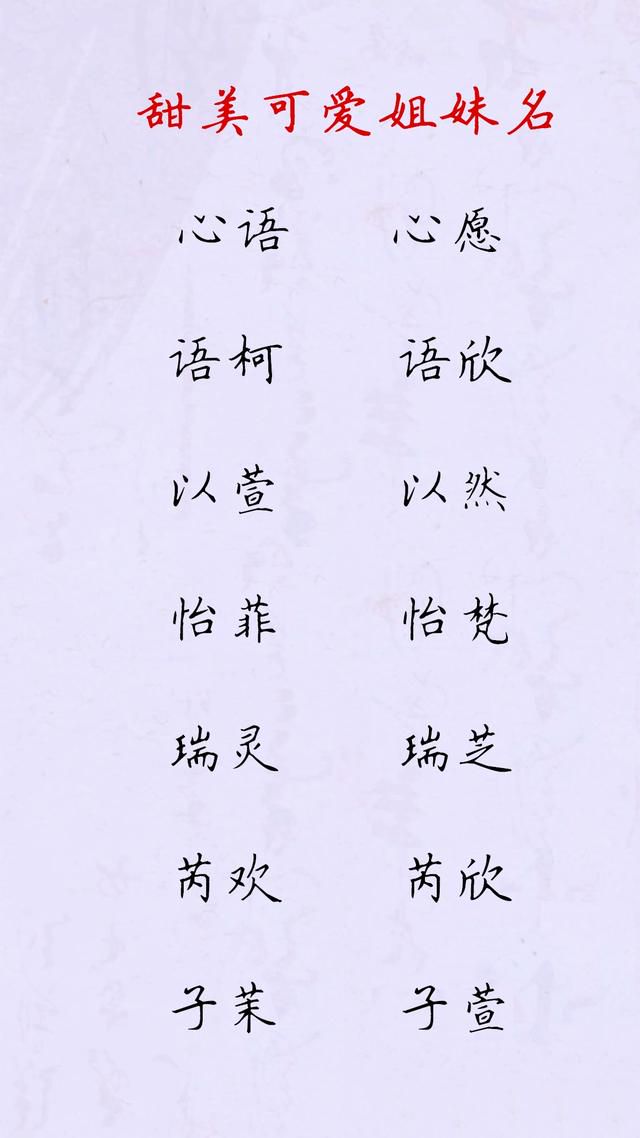 甜美可爱姐妹名
心语 心愿
语柯 语欣
以萱 以然
怡菲 怡梵
瑞灵 瑞芝
芮欢 芮欣
子茉 子萱